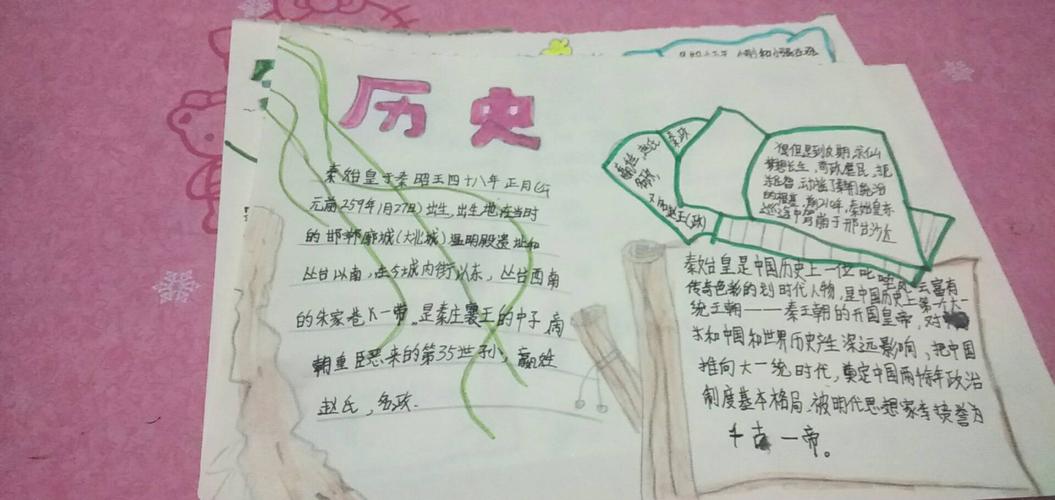 历史
秦始皇于秦昭王四十八年正月(公
元前259年1月27日)出生,出生地在当时
的邯郸廓城(大北城)温明殿遗址和
丛台以南,在今城内街以东,丛台西南
的朱家巷 一带。是秦庄襄王的中子,商
朝重臣恶来的第35世孙,嬴姓
赵氏,名政.
嬴姓,赵氏
名政,
又
赵王(政)
秦政
但是到 期 求仙
梦想长生,苛政虐民,扼
动摇了秦朝统治
的根基,前210年,秦始皇东
巡途中 崩于邢台沙丘
秦始皇是中国历史上一位叱咤风云富有
传奇色彩的划时代人物,是中国历史上第一个大一
统王朝——秦王朝的开国皇帝,对
和中国和世界历史产生深远影响,把中国
推向大一统时代,奠定中国两千余年政治
制度基本格局.被明代思想家李贽誉为
千古一帝。